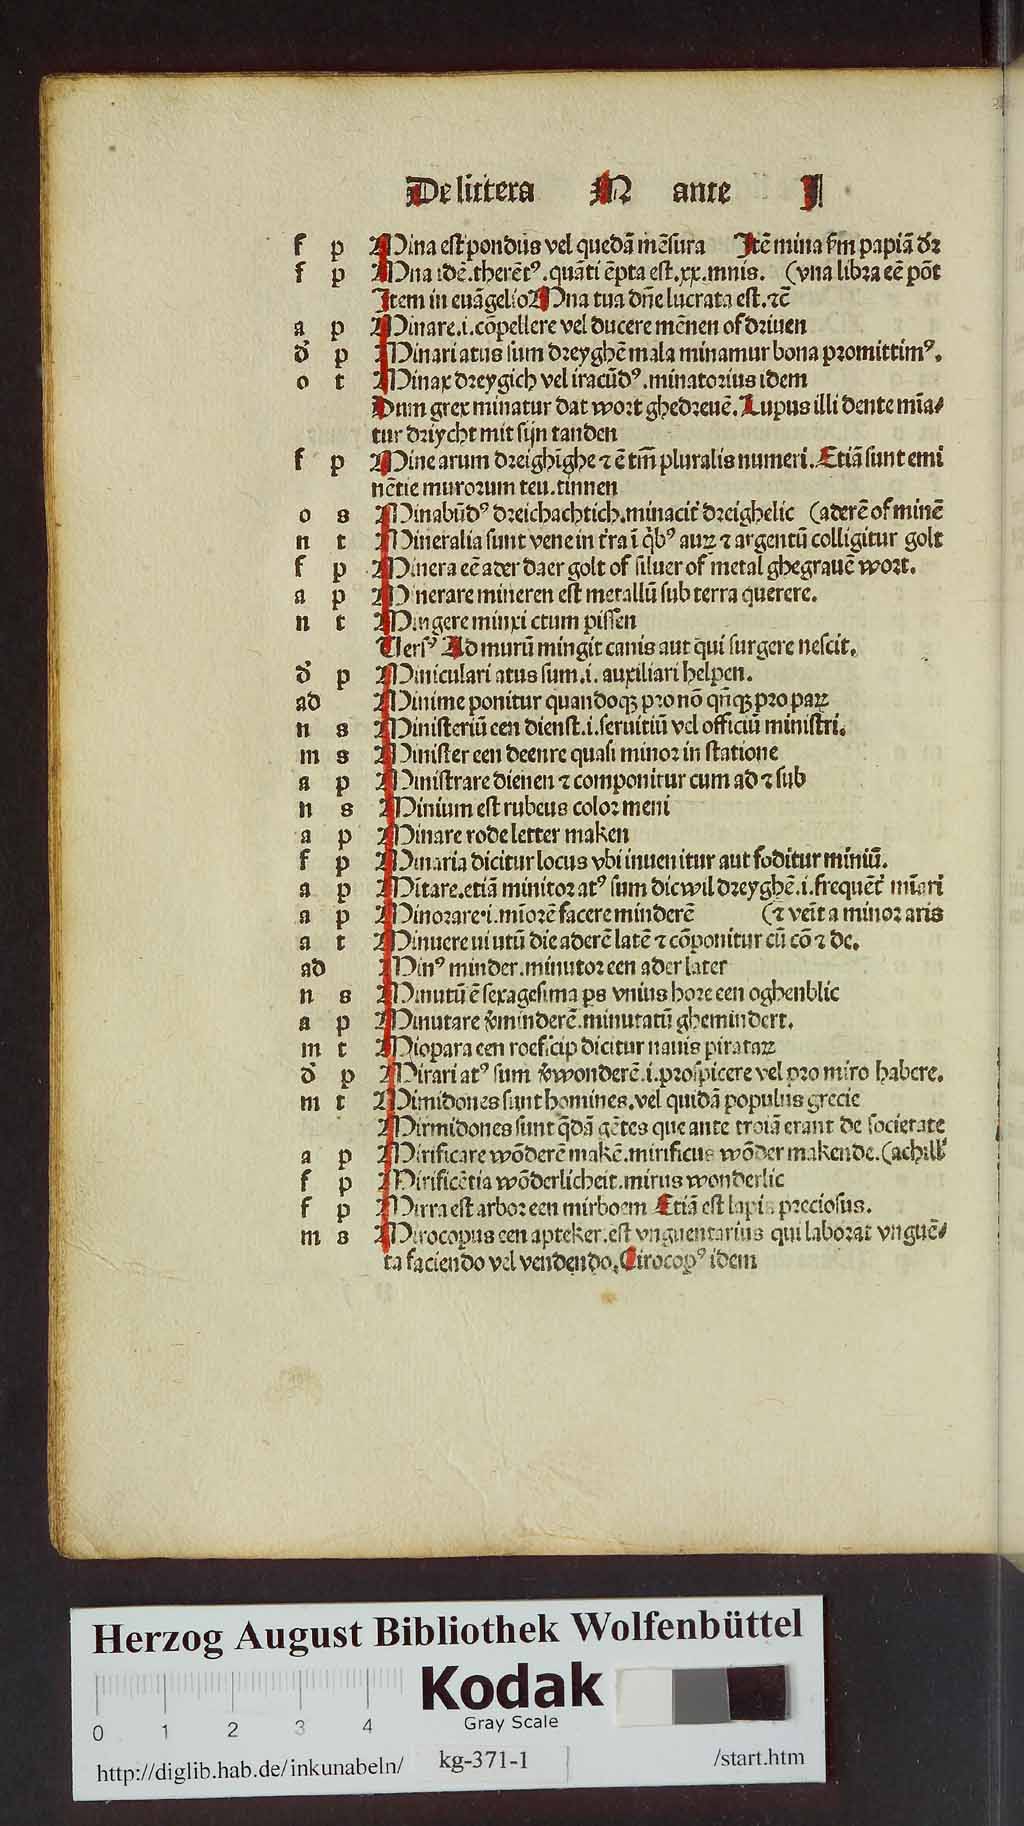 De littera M ante I
f p Mina est pondus vel quedã mẽsura Itẽ mina sm papiã dꝛ
f p Mna idẽ.therẽtꝰ.quãti ẽpta est.xx.mnis. (vna libra eẽ põt
Item in euãgelio Mna tua dñe lucrata est.⁊c̃
a p Minare.i.cõpellere vel ducere mẽnen of driuen
d p Minari atus sum dreyghẽ mala minamur bona promittimꝰ.
o t Minax dreygich vel iracũdꝰ.minatorius idem
Dum grex minatur dat wort ghedreuẽ.Lupus illi dente mĩa/
tur driycht mit sijn tanden
f p Mine arum dreighĩghe ⁊ ẽ tm̃ pluralis numeri.Etiã sunt emi
nẽtie murorum teu.tinnen
o s Minabũdꝰ dreichachtich.minacit̃ dreighelic (aderẽ of minẽ
n t Mineralia sunt vene in t̃ra ĩ q̃bꝰ auꝝ ⁊ argentũ colligitur golt
f p Minera eẽ ader daer golt of siluer of metal ghegrauẽ wort.
a p Minerare mineren est metallũ sub terra querere.
n t Mingere minxi ctum pissen
Versꝰ Ad murũ mingit canis aut qui surgere nescit.
d p Miniculari atus sum.i.auxiliari helpen.
ad Minime ponitur quandoqꝫ pro nõ qñqꝫ pro paꝝ
n s Ministeriũ een dienst.i.seruitiũ vel officiũ ministri.
m s Minister een deenre quasi minor in statione
a p Ministrare dienen ⁊ componitur cum ad ⁊ sub
n s Minium est rubeus color meni
a p Minare rode letter maken
f p Minaria dicitur locus vbi inuenitur aut foditur miniũ.
a p Mitare.etiã minitor atꝰ sum dic wil dreyghẽ.i.frequẽt̃ mĩari
a p Minorare.i.mĩorẽ facere minderẽ (⁊ veĩt a minor aris
a t Minuere ui utũ die aderẽ latẽ ⁊ cõponitur cũ cõ ⁊ de.
ad Minꝰ minder.minutor een ader later
n s Minutũ ẽ sexagesima ps vnius hore een oghenblic
a p Minutare v̾minderẽ.minutatũ ghemindert.
m t Miopara een roefscip dicitur nauis pirataꝝ
d p Mirari atꝰ sum v̾wonderẽ.i.prospicere vel pro miro habere.
m t Mimidones sunt homines.vel quidã populus grecie
Mirmidones sunt q̃dã gẽtes que ante troiã erant de societate
a p Mirificare wõderẽ makẽ.mirificus wõder makende.(achill'
f p Mirificẽtia wõderlicheit.mirus wonderlic
f p Mirra est arbor een mirboem Etiã est lapis preciosus.
m s Mirocopus een apteker.est vnguentarius qui laborat vnguẽ/
ta faciendo vel vendendo.Cirocopꝰ idem
Herzog August Bibliothek Wolfenbüttel
Kodak
Gray Scale
0 1 2 3 4
http://diglib.hab.de/inkunabeln/ kg-371-1 /start.htm